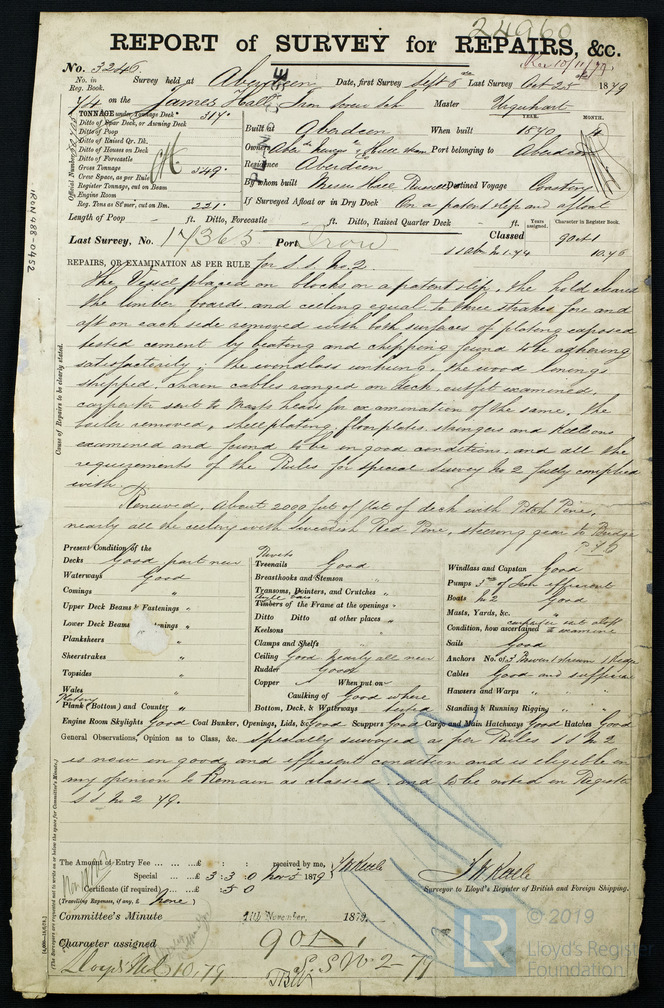 24960
REPORT of SURVEY for REPAIRS, &c.
Rec 10/11/79
No. 3246
No. in Reg. Book. Survey held at Aberdeen Date, first Survey Sept 6th Last Survey Oct 25th 1879
74 on the James Hall Iron Screw Sch Master Urquhart
TONNAGE under Tonnage Deck 317.
Ditto of Spar Deck, or Awning Deck
Ditto of Poop
Ditto of Raised Qr. Dk.
Ditto of Houses on Deck
Ditto of Forecastle
Gross Tonnage 349.
Crew Space, as per Rule
Register Tonnage, cut on Beam
Engine Room
Reg. Tons as Str., cut on Bm. 221.
Built at Aberdeen When built YEAR. 1870 MONTH. 4
Owners Port belonging to Aberdeen
Residence Aberdeen
By whom built Messrs Hall Russell Destined Voyage Coasting
If Surveyed Afloat or in Dry Dock On a patent slip and afloat
Length of Poop - ft. Ditto, Forecastle - ft. Ditto, Raised Quarter Deck - ft.
Years assigned. Character in Register Book.
Last Survey, No. 17365 Port Iron Classed 90A1
SS Abn No 1. 74 10.78
REPAIRS, OR EXAMINATION AS PER RULE for S.S. No. 2
The Vessel placed on blocks on a patent slip, the hold cleared
the limber boards and ceiling equal to three strakes fore and
aft on each side removed with both surfaces of plating exposed
tested cement by beating and chipping found to be adhering
satisfactorily; the windlass unhung, the wood linings
stripped, chain cables ranged on deck, outfit examined,
carpenter sent to Masts heads for examination of the same. The
boiler removed, shell plating, floorplates, stringers and keelsons
examined and found to be in good condition, and all the
requirements of the Rules for Special Survey No 2 fully complied
with.
Renewed. About 2000 feet of flat of deck with Pitch Pine,
nearly all the ceiling with Swedish Red Pine, steering gear to Bridge
Cause of Repairs to be clearly stated.
Present Condition of the
Decks Good part new
Waterways Good
Comings "
Upper Deck Beams & Fastenings "
Lower Deck Beams & Fastenings "
Planksheers "
Sheerstrakes "
Topsides "
Wales "
Plating
Plank (Bottom) and Counter "
Rivets
Treenails Good
Breasthooks and Stemson "
Transoms, Pointers, and Crutches "
Angle bars
Timbers of the Frame at the openings "
Ditto Ditto at other places "
Keelsons "
Clamps and Shelfs "
Ceiling Good nearly all new
Rudder Good
Copper When put on
Caulking of Good where
Bottom, Deck, & Waterways tested
Windlass and Capstan Good
Pumps 3 no of Iron efficient
Boats No 2 Good
Masts, Yards, &c.
Condition, how ascertained carpenter sent aloft to examine
Sails Good
Anchors No. of 3 Bowers 1 stream 1 kedge
Cables Good and sufficient
Hawsers and Warps " "
Standing & Running Rigging " "
Engine Room Skylights Good Coal Bunker, Openings, Lids, &c. Good Scuppers Good Cargo and Main Hatchways Good Hatches Good
General Observations, Opinion as to Class, &c. Specially surveyed as per Rules S S No 2
is now in good and efficient condition and is eligible in
my opinion to Remain as classed and to be noted in Register
S S No 2 79.
The Amount of Entry Fee ... £ : : received by me,
Special ... £ 3 : 3 : 0 Nov 5 1879
Certificate (if required) £ : 5 0
(Travelling Expenses, if any, £ None )
Surveyor to Lloyd's Register of British and Foreign Shipping.
Committee's Minute 11th November, 1879.
Character assigned 90A1
S.S. No. 2-79
10.79
IRON 488-0452
© 2019
LR
Lloyd's Register
Foundation